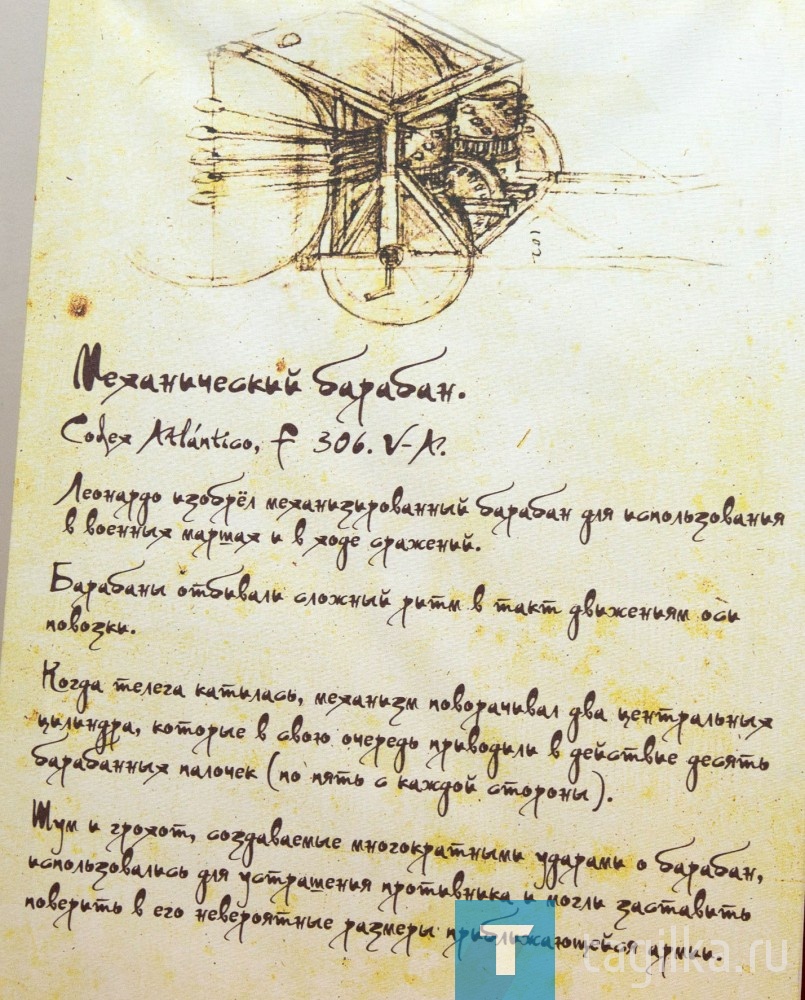 Механический барабан.
Codex Atlántico, f 306. V-A.
Леонардо изобрёл механизированный барабан для использования
в военных маршах и в ходе сражений.
Барабаны отбивали сложный ритм в такт движениям оси
повозки.
Когда телега катилась, механизм поворачивал два центральных
цилиндра, которые в свою очередь приводили в действие десять
барабанных палочек (по пять с каждой стороны).
Шум и грохот, создаваемые многократными ударами о барабан,
использовались для устрашения противника и могли заставить
поверить в его невероятные размеры приближающейся армии.
T tagilka.ru